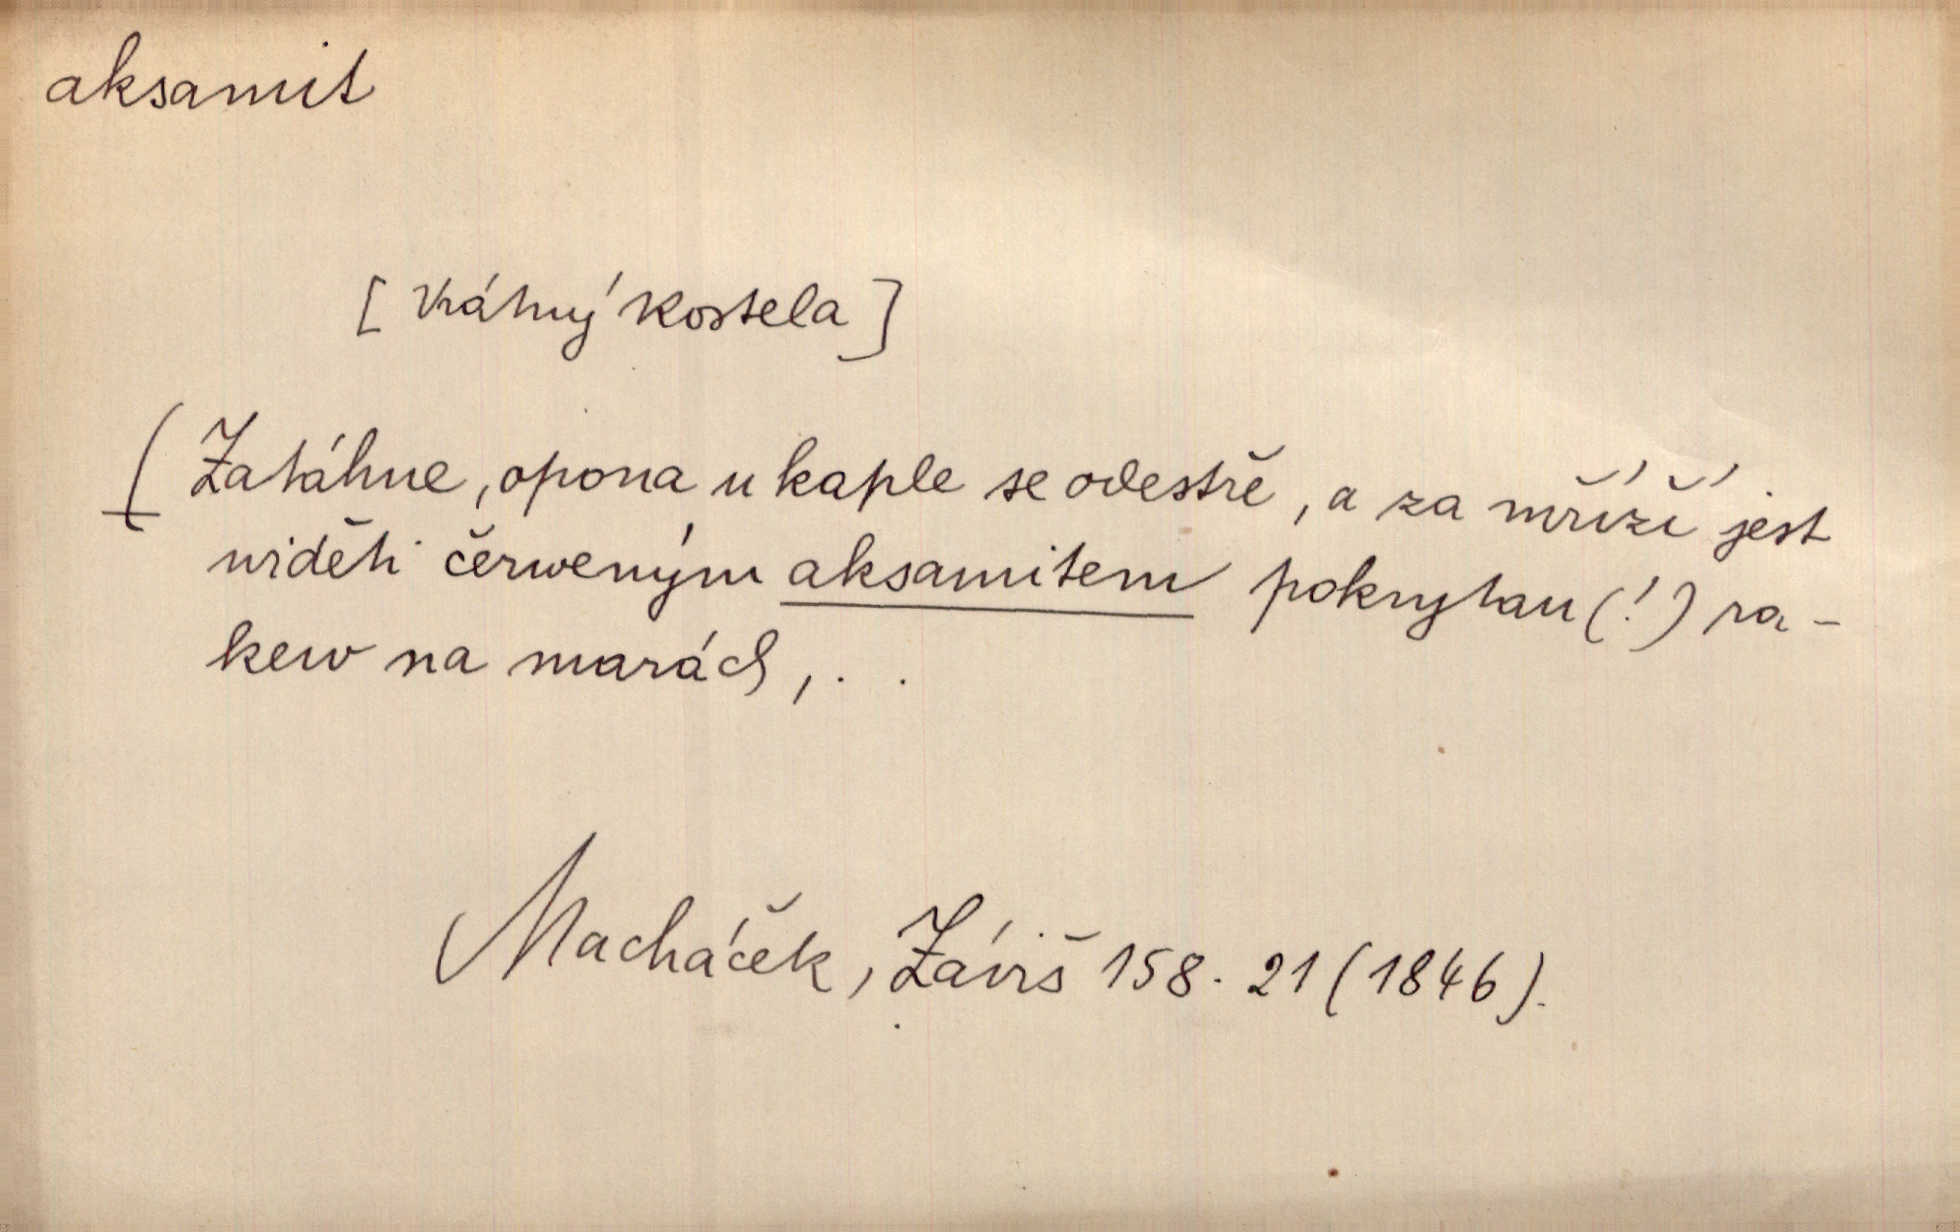 aksamit
[Vrátný kostela]
(Zatáhne, opona u kaple se odestře, a za mříží jest
widěti červeným aksamitem pokrytau (!) ra-
kew na marách, . .
Macháček, Záviš 158. 21 (1846).